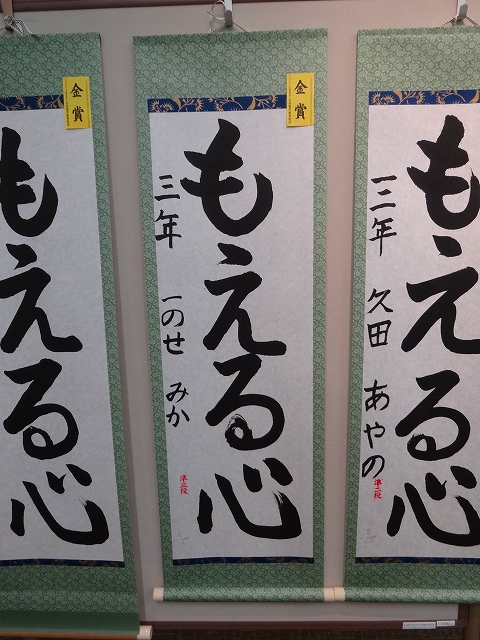 金賞
もえる心
金賞
もえる心
三年 一のせ みか
準三段
もえる心
三年 久田 あやの
準二段